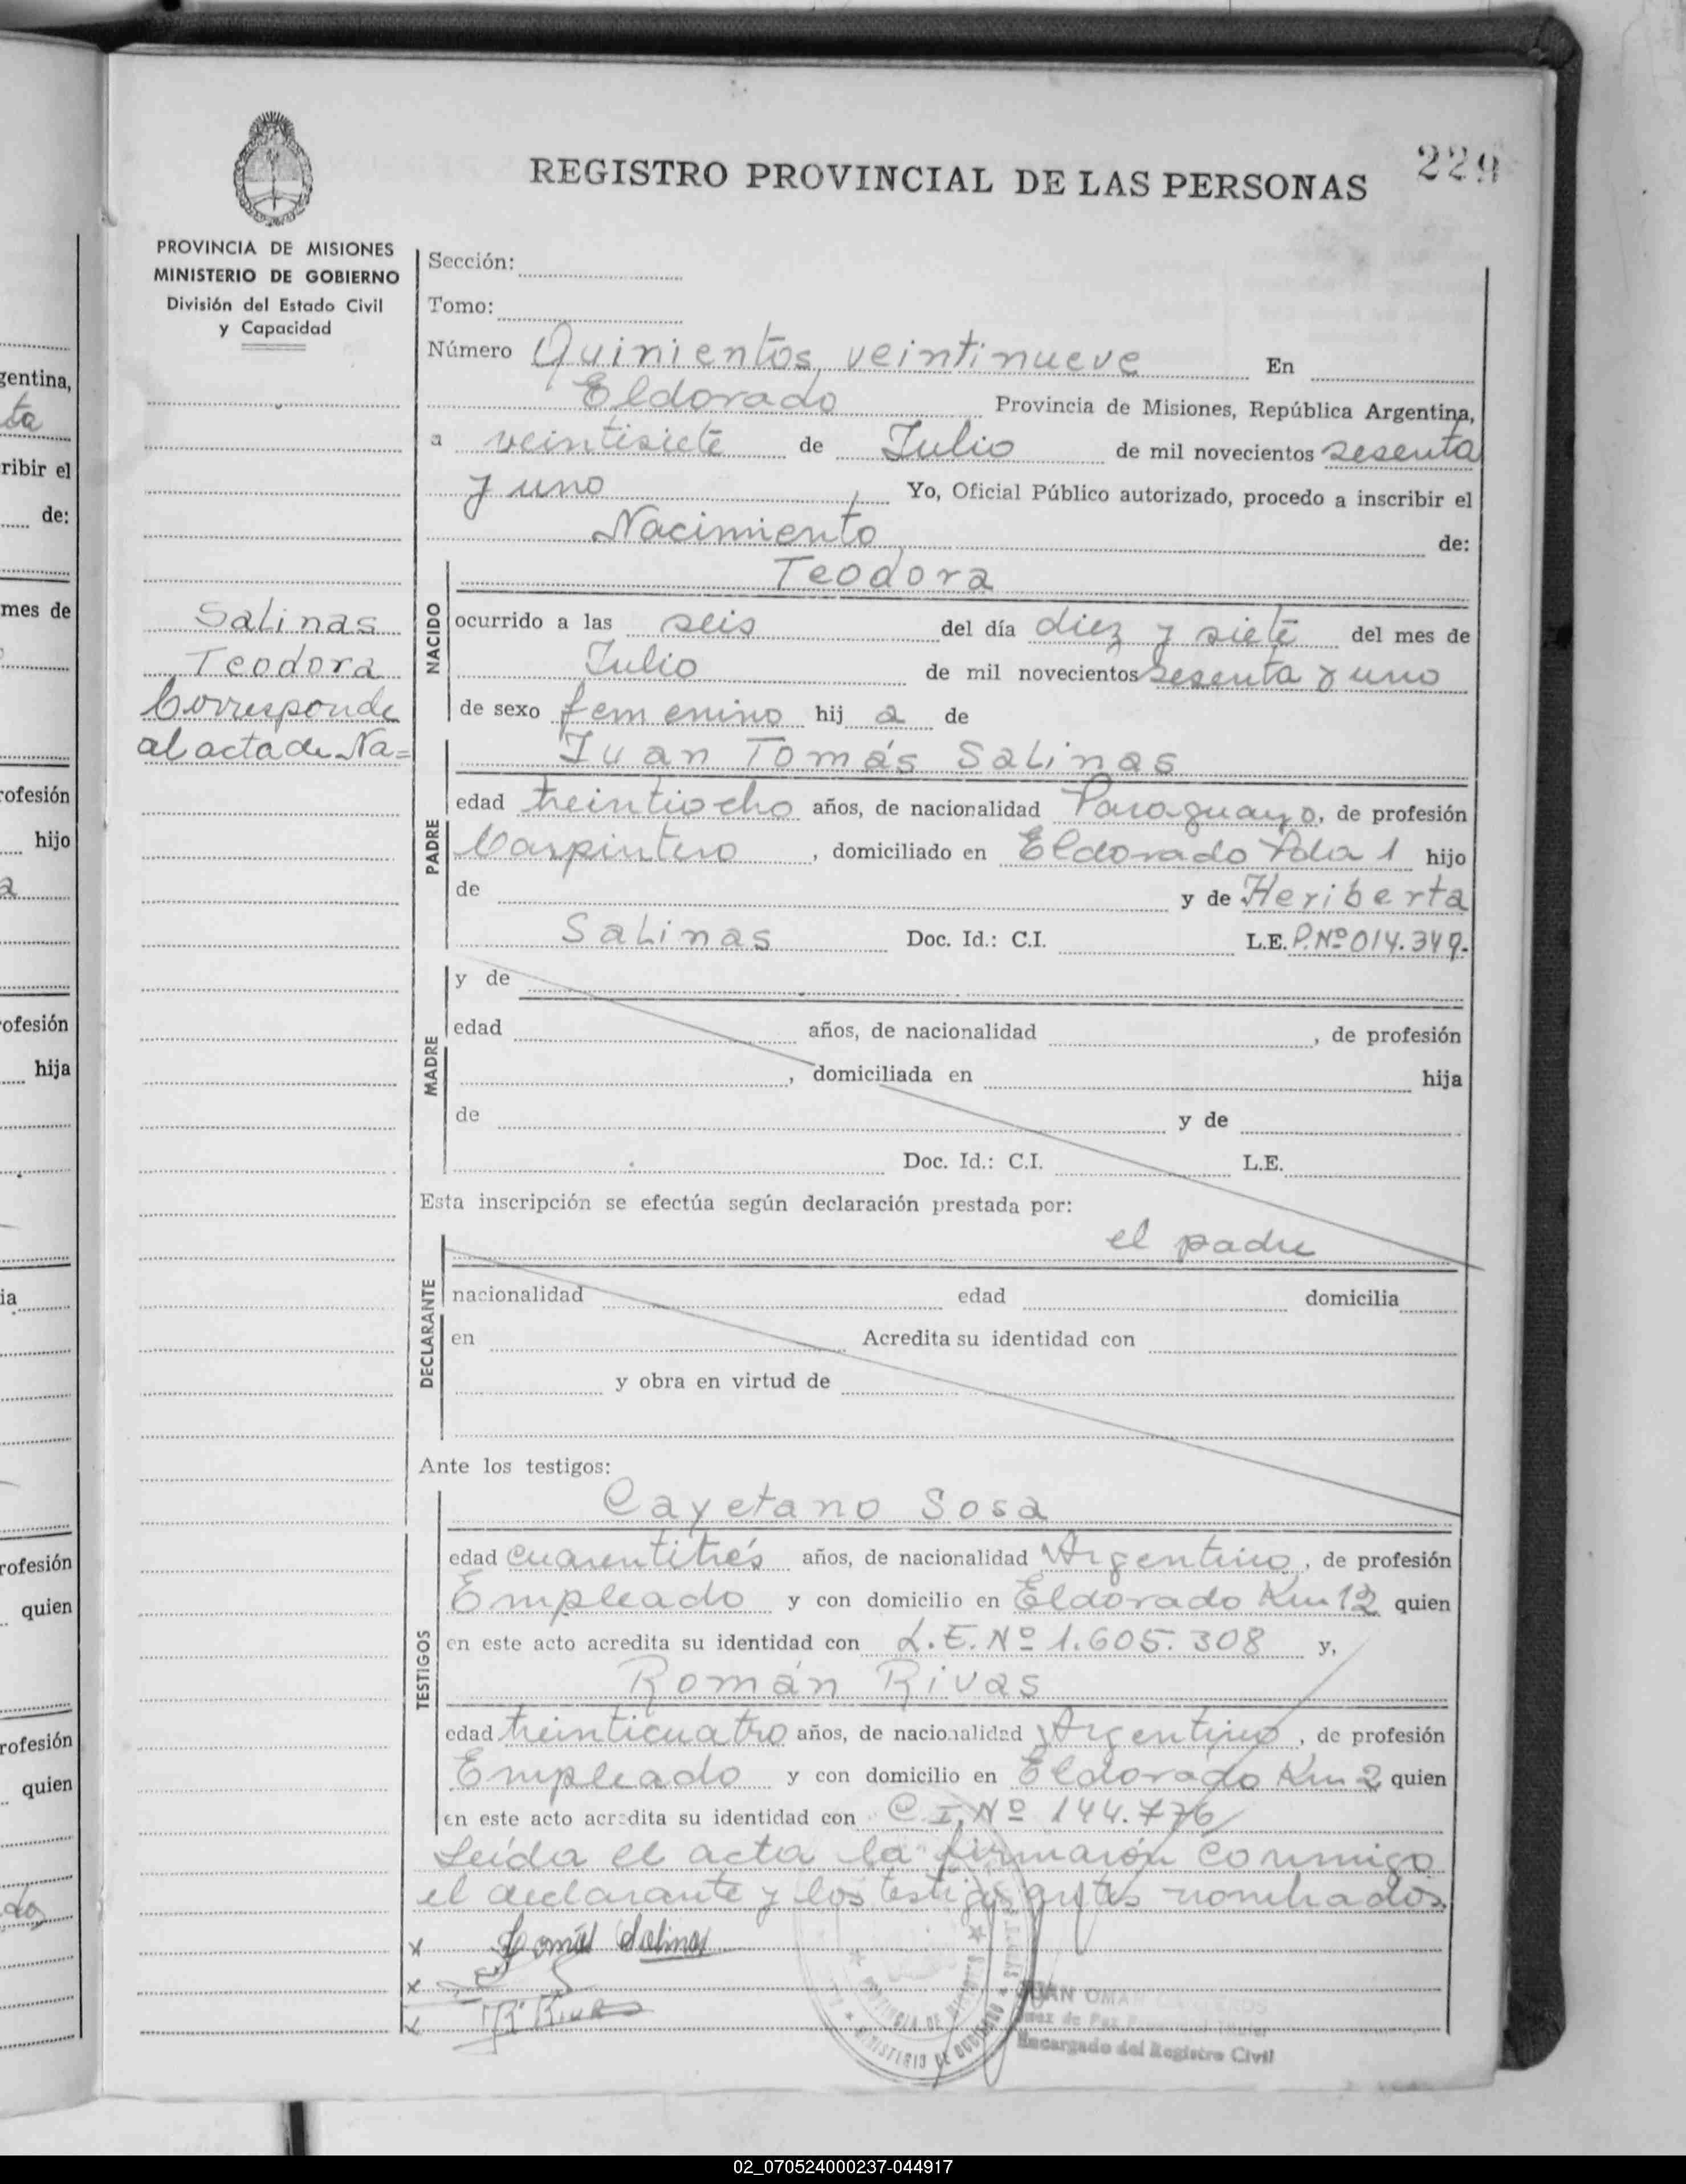 gentina,
ta
ribir el
de:
mes de
rofesión
hijo
a
ofesión
hija
ia
rofesión
quien
rofesión
quien
do
PROVINCIA DE MISIONES
MINISTERIO DE GOBIERNO
División del Estado Civil
y Capacidad
Salinas
Teodora
Corresponde
al acta de Na=
REGISTRO PROVINCIAL DE LAS PERSONAS 229
Sección:
Tomo:
Número Quinientos veintinueve En
Eldorado Provincia de Misiones, República Argentina,
a veintisiete de Julio de mil novecientos sesenta
y uno Yo, Oficial Público autorizado, procedo a inscribir el
Nacimiento de:
NACIDO
Teodora
ocurrido a las seis del día diez y siete del mes de
Julio de mil novecientos sesenta y uno
de sexo femenino hij a de
PADRE
Juan Tomás Salinas
edad treintiocho años, de nacionalidad Paraguayo, de profesión
Carpintero, domiciliado en Eldorado Pda 1 hijo
de y de Heriberta
Salinas Doc. Id.: C.I. L.E. P.Nº 014.349.
MADRE
y de
edad años, de nacionalidad , de profesión
, domiciliada en hija
de y de
Doc. Id.: C.I. L.E.
Esta inscripción se efectúa según declaración prestada por:
el padre
DECLARANTE
nacionalidad edad domicilia
en Acredita su identidad con
y obra en virtud de
Ante los testigos:
TESTIGOS
Cayetano Sosa
edad cuarentitrés años, de nacionalidad Argentino, de profesión
Empleado y con domicilio en Eldorado Km 12 quien
en este acto acredita su identidad con L.E. Nº 1.605.308 y,
Román Rivas
edad treinticuatro años, de nacionalidad Argentino, de profesión
Empleado y con domicilio en Eldorado Km 2 quien
en este acto acredita su identidad con C.I. Nº 144.776
Leída el acta la firmaron conmigo
el declarante y los testigos antes nombrados.
x Tomás Salinas
x
x R Rivas
PROVINCIA DE MISIONES
MINISTERIO DE GOBIERNO
JUAN OMAR
Juez de Paz
Encargado del Registro Civil
02_070524000237-044917